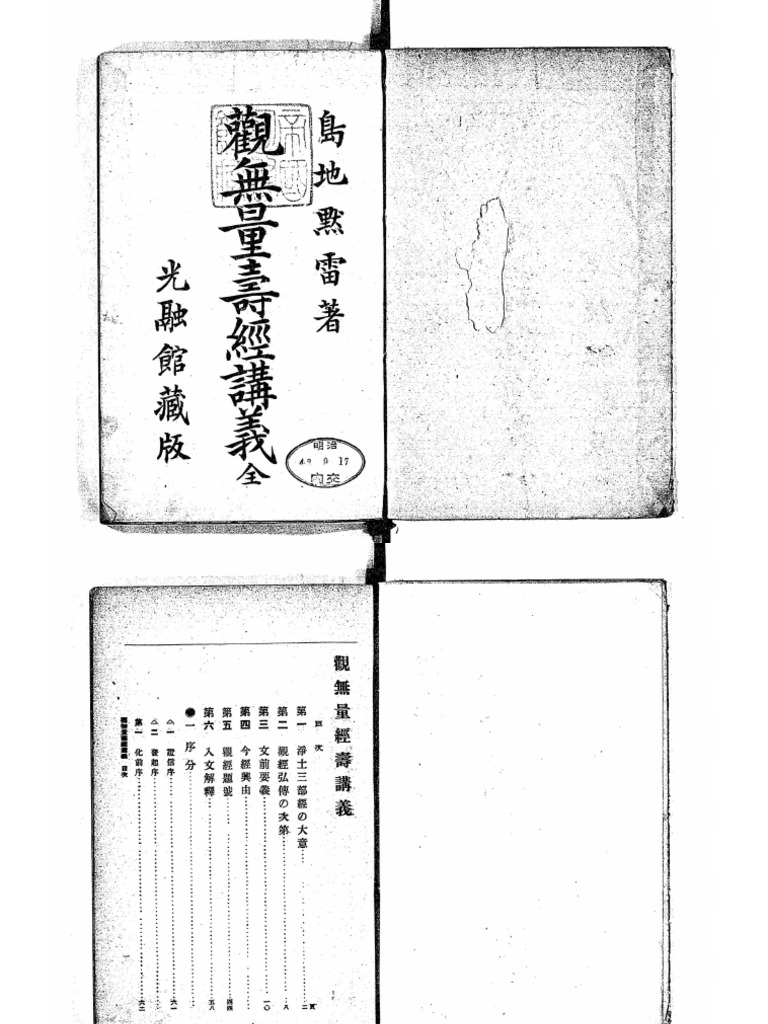 島地黙雷著
觀無量壽經講義全
光融館藏版
明治
43 9 17
内交
觀無量經壽講義
目次
第一 淨土三部經の大意 二
第二 觀經弘傳の次第 八
第三 文前要義 一〇
第四 今經興由
第五 觀經題號 四四
第六 入文解釋 五八
●一 序分
△一 證信序 六一
△二 發起序
第一 化前序 六二